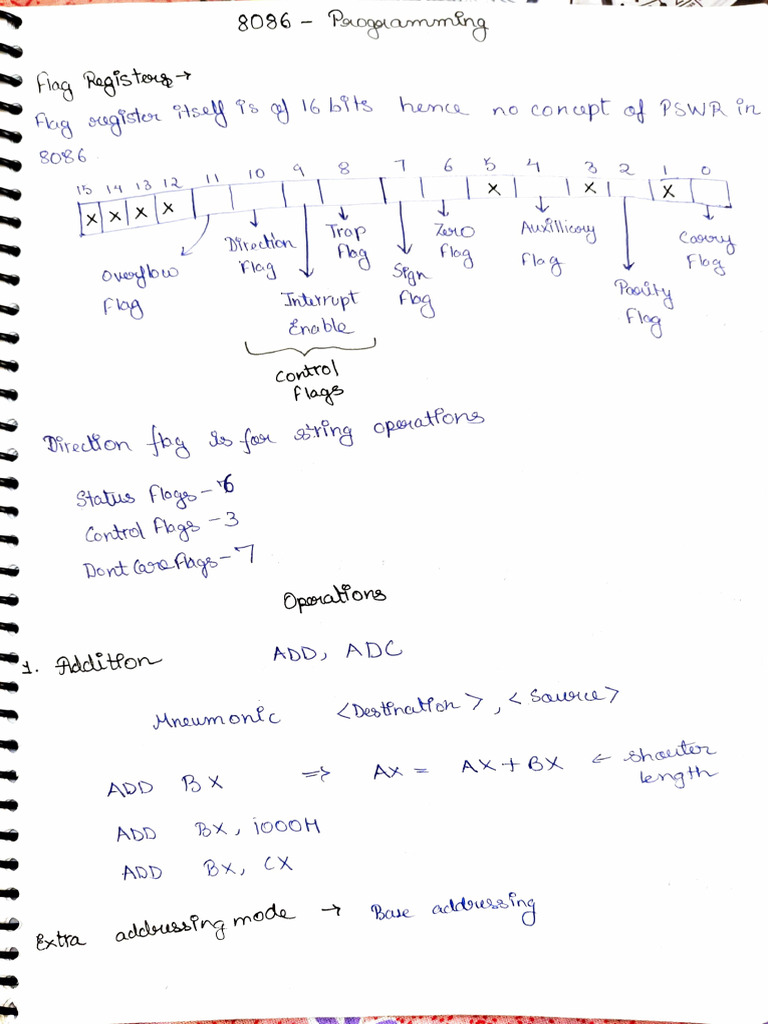 8086 - Programming
Flag Registers →
Flag register itself is of 16 bits hence no concept of PSWR in
8086
15 14 13 12 11 10 9 8 7 6 5 4 3 2 1 0
X X X X X X X
Overflow Flag
Direction Flag
Interrupt Enable
Trap Flag
Sign Flag
Zero Flag
Auxillicary Flag
Parity Flag
Carry Flag
Control
Flags
Direction flag is for string operations
Status Flags - 6
Control Flags - 3
Dont Care Flags - 7
Operations
1. Addition ADD, ADC
Mneumonic <Destination>, <Source>
ADD BX => AX = AX + BX ← shorter
length
ADD BX, 1000H
ADD BX, CX
Extra addressing mode → Base addressing